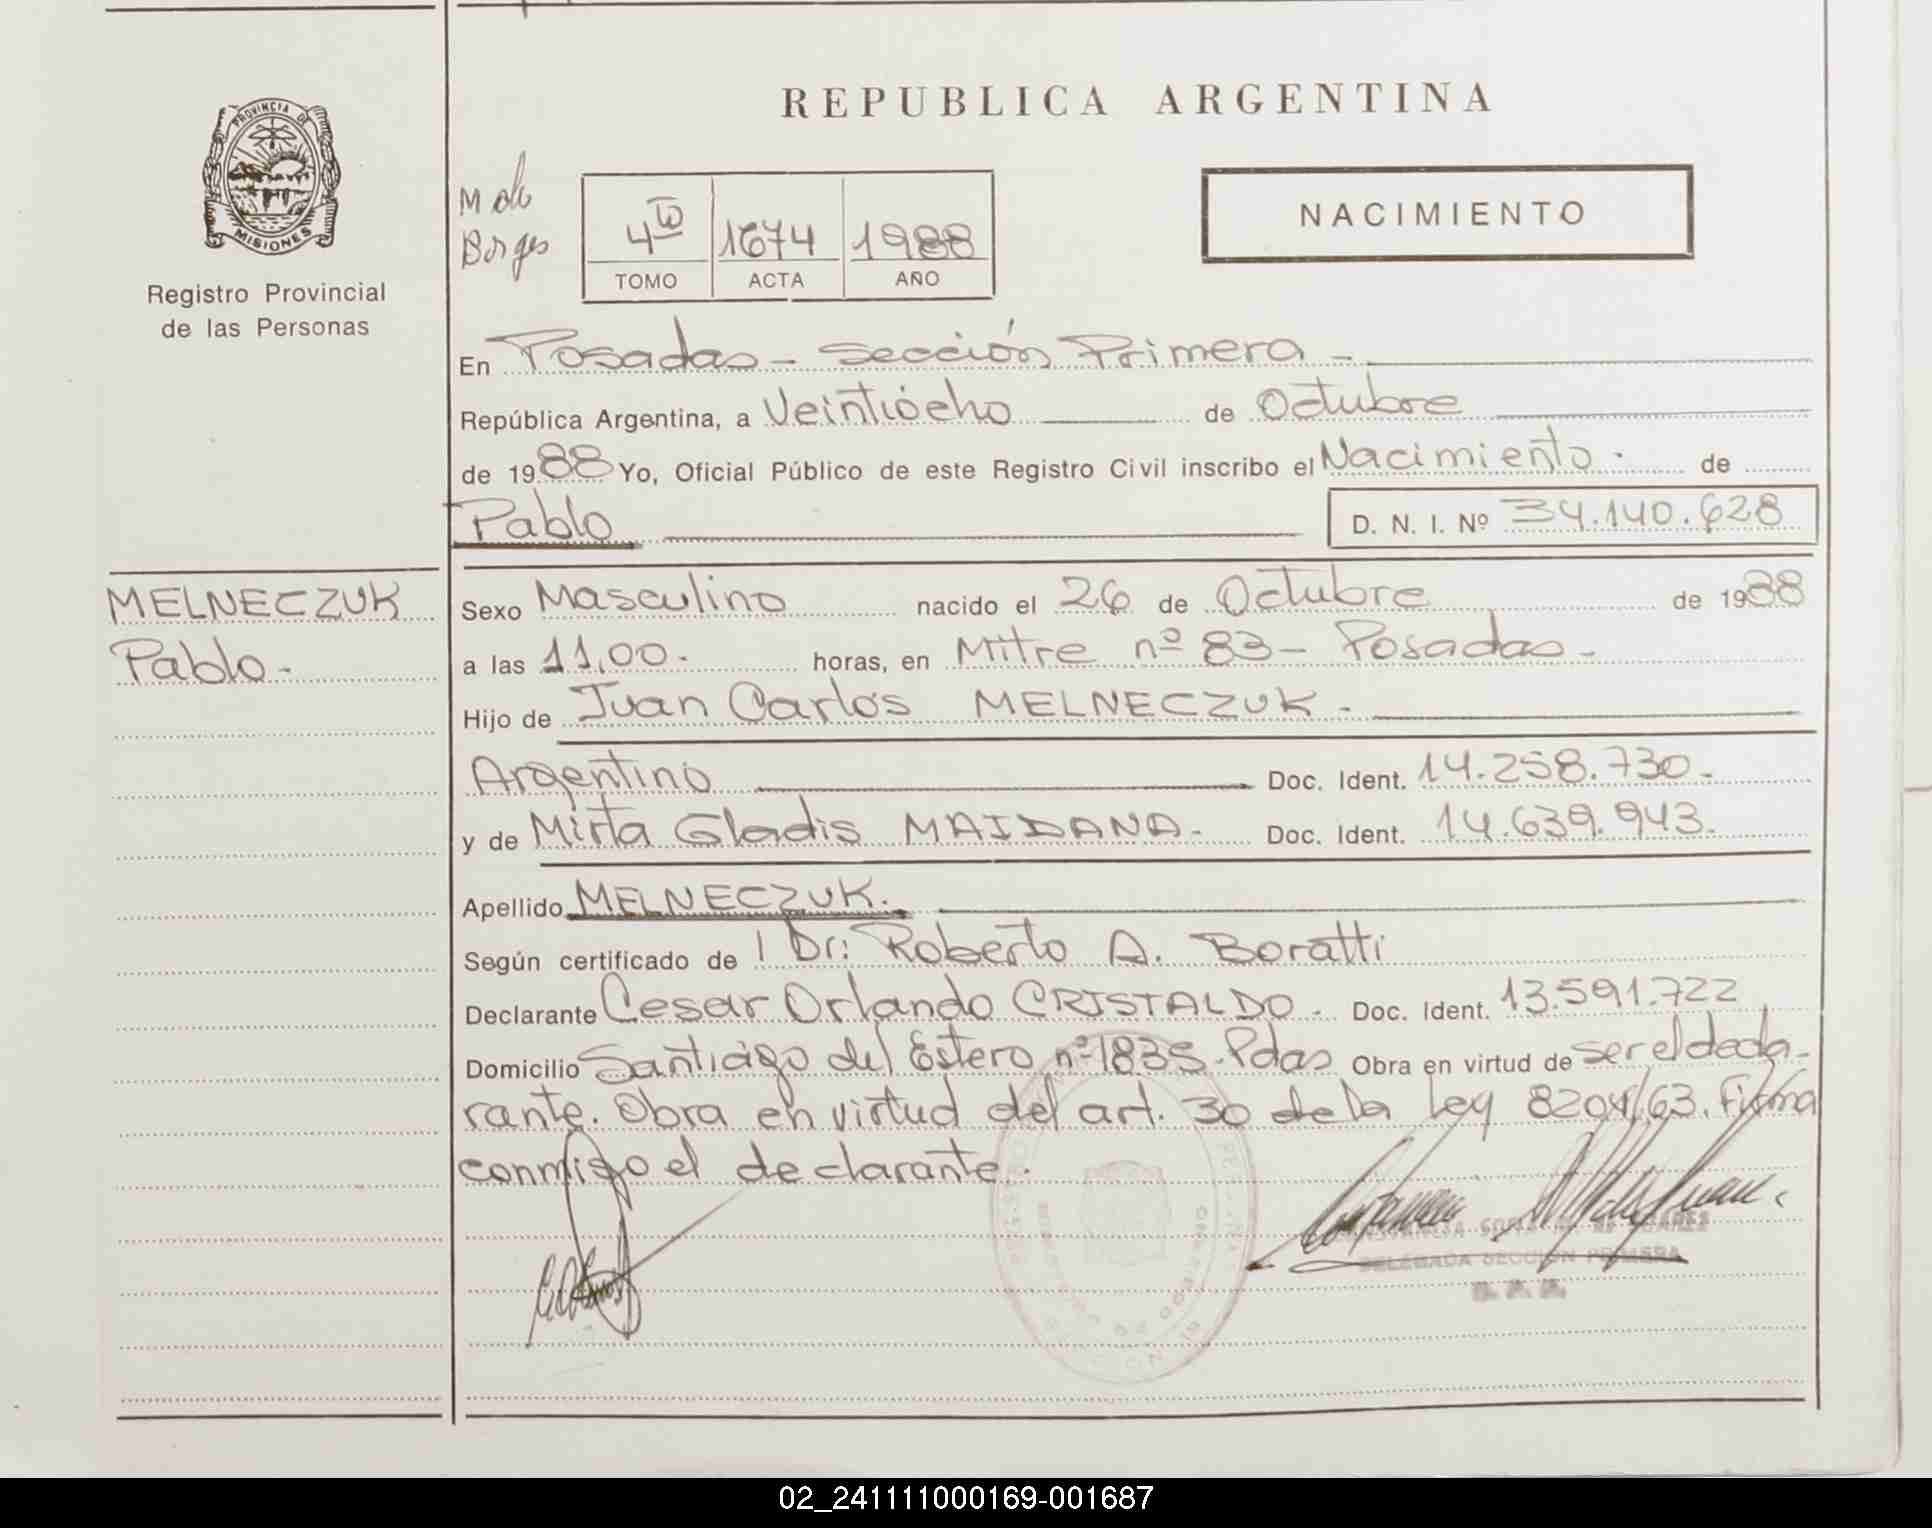 REPUBLICA ARGENTINA
PROVINCIA DE
MISIONES
Registro Provincial
de las Personas
Borges
4to 1674 1988
TOMO ACTA AÑO
NACIMIENTO
En Posadas - sección Primera -
República Argentina, a Veintiócho de Octubre
de 1988 Yo, Oficial Público de este Registro Civil inscribo el Nacimiento. de
Pablo D. N. I. Nº 34.140.628
MELNECZUK
Pablo-
Sexo Masculino nacido el 26 de Octubre de 1988
a las 11,00- horas, en Mitre nº 83 - Posadas -
Hijo de Juan Carlos MELNECZUK -
Argentino Doc. Ident. 14.258.730-
y de Mirta Gladis MAIDANA- Doc. Ident. 14.639.943-
Apellido MELNECZUK.
Según certificado de l Dr: Roberto A. Boratti
Declarante Cesar Orlando CRISTALDO. Doc. Ident. 13.591.722
Domicilio Santiágo del Estero nº 1835. Pdas Obra en virtud de ser el decla-
rante. Obra en virtud del art. 30 de la Ley 8204/63. Firma
conmigo el declarante.
DELEGADA SECCION PRIMERA
02_241111000169-001687